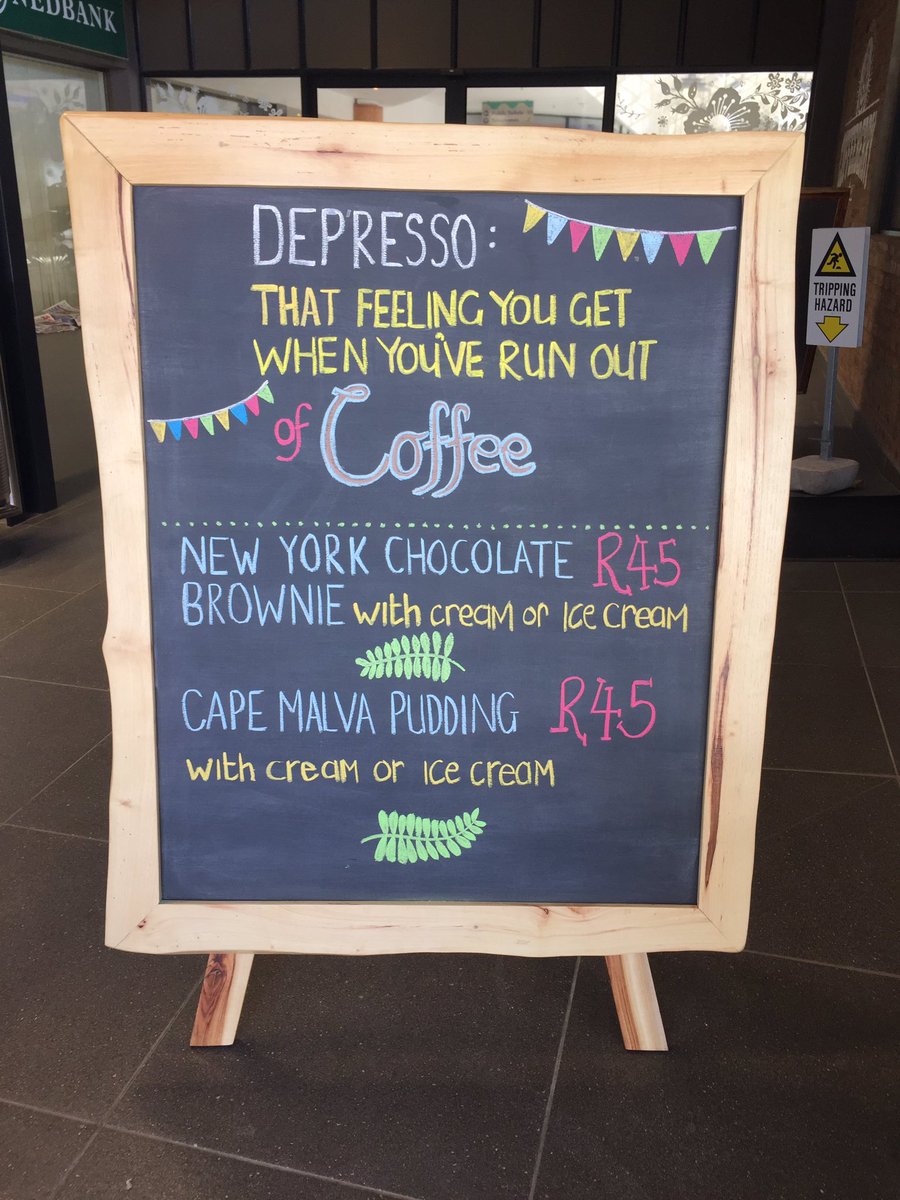 NEDBANK
DEP'RESSO:
THAT FEELING YOU GET
WHEN YOU'VE RUN OUT
of Coffee
NEW YORK CHOCOLATE R45
BROWNIE with cream or Ice cream
CAPE MALVA PUDDING R45
with cream or Ice cream
TRIPPING
HAZARD